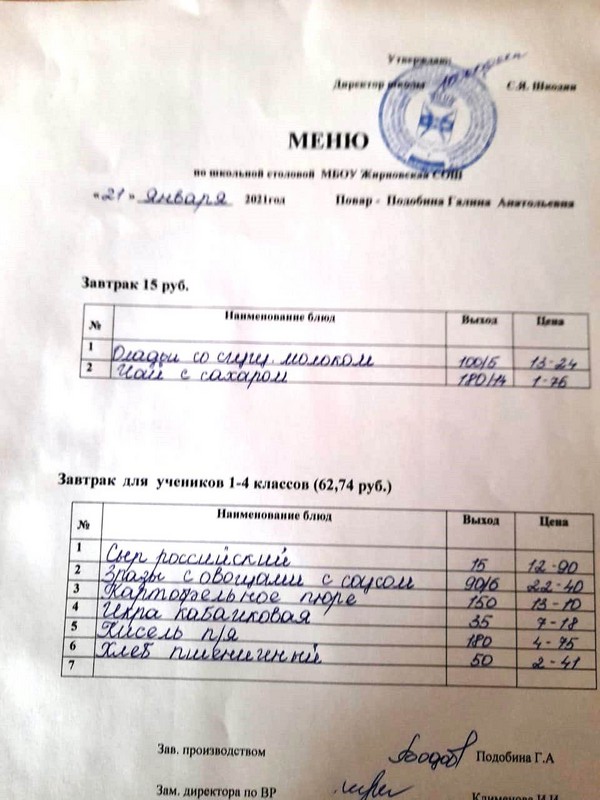 Утверждаю:
Директор школы С.Я. Школин
МЕНЮ
по школьной столовой МБОУ Жирновская СОШ
«21» января 2021год Повар - Подобина Галина Анатольевна
Завтрак 15 руб.
№ Наименование блюд Выход Цена
1 Оладьи со сгущ. молоком 100/5 13-24
2 Чай с сахаром 180/14 1-76
Завтрак для учеников 1-4 классов (62,74 руб.)
№ Наименование блюд Выход Цена
1 Сыр российский 15 12-90
2 Зразы с овощами с соусом 90/6 22-40
3 Картофельное пюре 150 13-10
4 Икра кабачковая 35 7-18
5 Кисель п/я 180 4-75
6 Хлеб пшеничный 50 2-41
7
Зав. производством Подобина Г.А
Зам. директора по ВР Клименова И.И